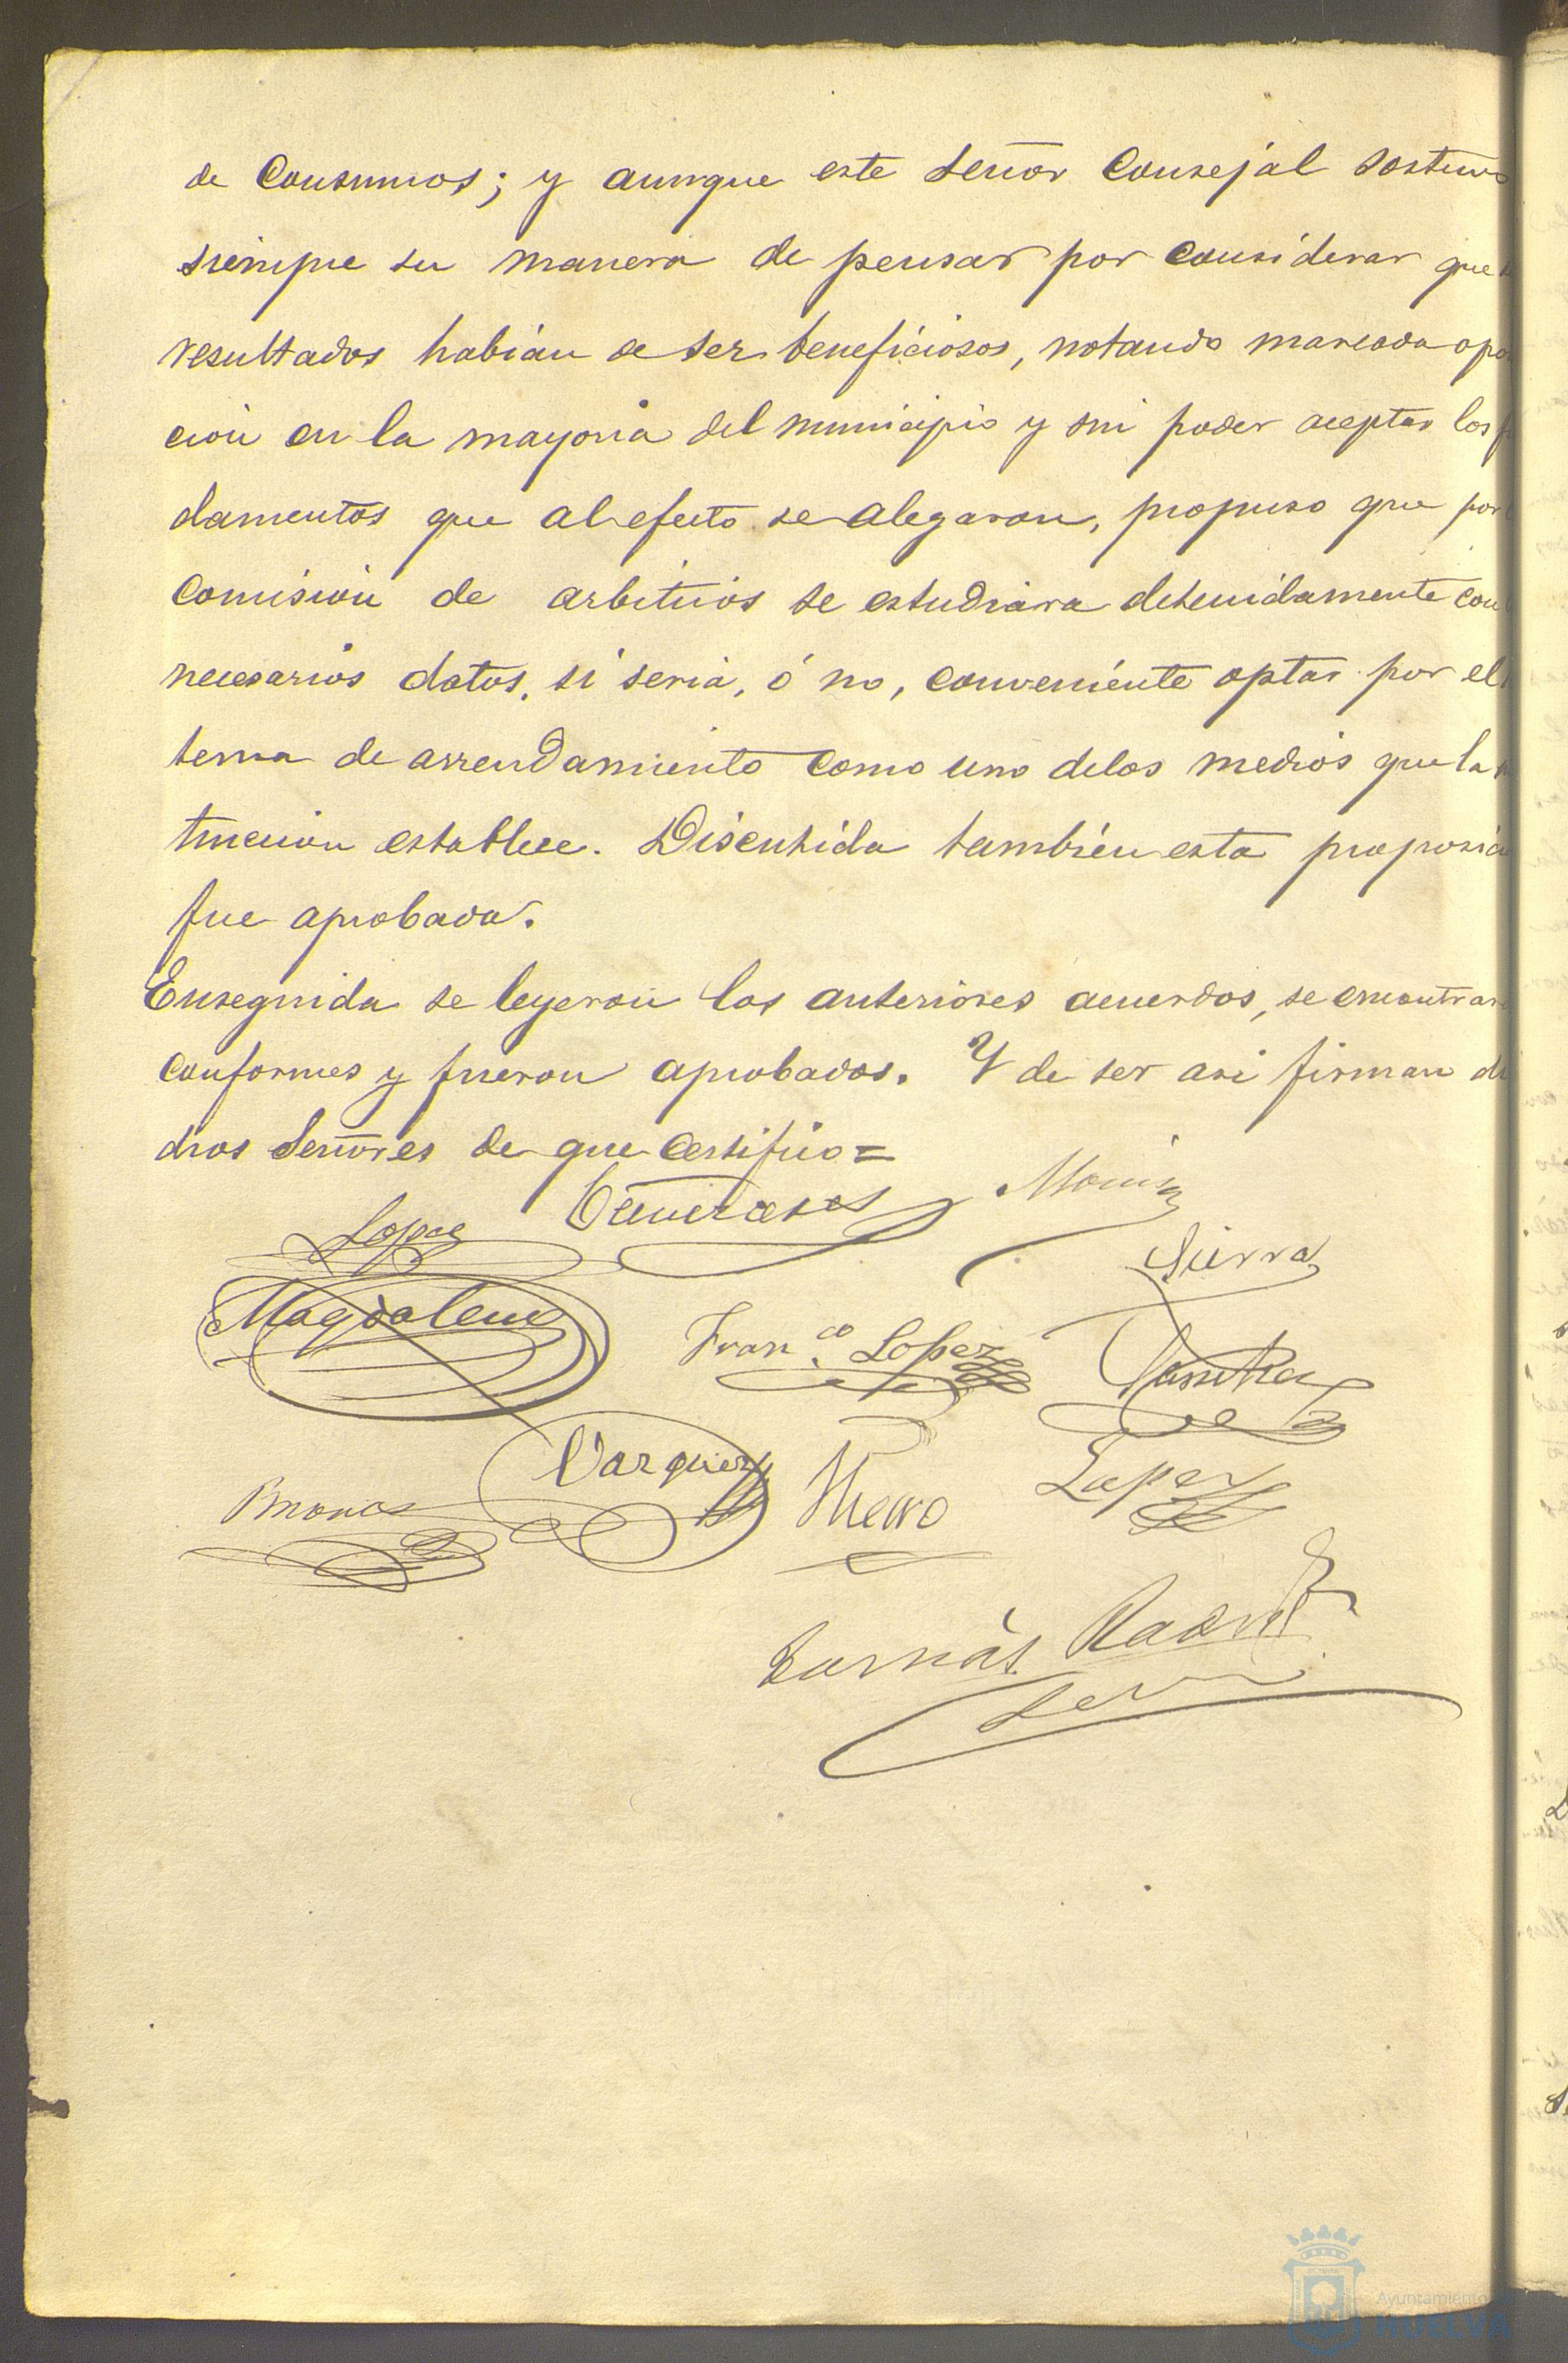 de Consumos; y aunque este Señor Consejal sostuvo
siempre su manera de pensar por considerar que
resultados habian de ser beneficiosos, notando marcada opo
cion en la mayoria del municipio y sin poder aceptar los
damentos que al efecto se alegaron, propuso que por
Comisión de arbitrios se estudiara detenidamente con
necesarios datos, si seria, ó no, conveniente optar por el
tema de arrendamiento como uno delos medios que la
truccion establece. Discutida también esta proposici
fue aprobada.
Enseguida se leyeron los anteriores acuerdos, se encontraro
conformes y fueron aprobados. Y de ser asi firman di
chos Señores de que certifico=
Lopez
Sierra
Magdalena
Fran.co Lopez
Vazquez
Lopez
Ayuntamiento
HUELVA